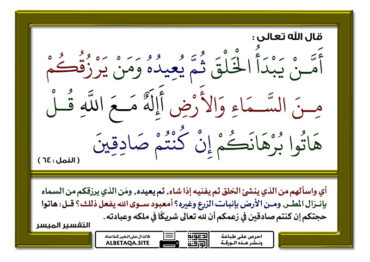 قال الله تعالى :
أَمَّنْ يَبْدَأُ الْخَلْقَ ثُمَّ يُعِيدُهُ وَمَنْ يَرْزُقُكُمْ
مِنَ السَّمَاءِ وَالأَرْضِ أَإِلَهٌ مَعَ اللَّهِ قُلْ
هَاتُوا بُرْهَانَكُمْ إِنْ كُنْتُمْ صَادِقِينَ
( النمل : ٦٤ )
أي واسألهم من الذي ينشئ الخلق ثم يفنيه إذا شاء، ثم يعيده، ومَن الذي يرزقكم من السماء
بإنزال المطر، ومن الأرض بإنبات الزرع وغيره؟ أمعبود سوى الله يفعل ذلك؟ قل: هاتوا
حجتكم إن كنتم صادقين في زعمكم أن لله تعالى شريكًا في ملكه وعبادته.
التفسير الميسر
احرص على طباعة
ونشر هذه الورقة
فالدال على الخير كفاعله
ALBETAQA.SITE